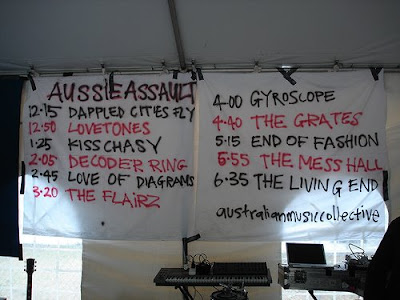 AUSSIE ASSAULT
12·15 DAPPLED CITIES FLY
12·50 LOVETONES
1·25 KISSCHASY
2·05 DECODER RING
2·45 LOVE OF DIAGRAMS
3·20 THE FLAIRZ
4·00 GYROSCOPE
4·40 THE GRATES
5·15 END OF FASHION
5·55 THE MESS HALL
6·35 THE LIVING END
australianmusiccollective